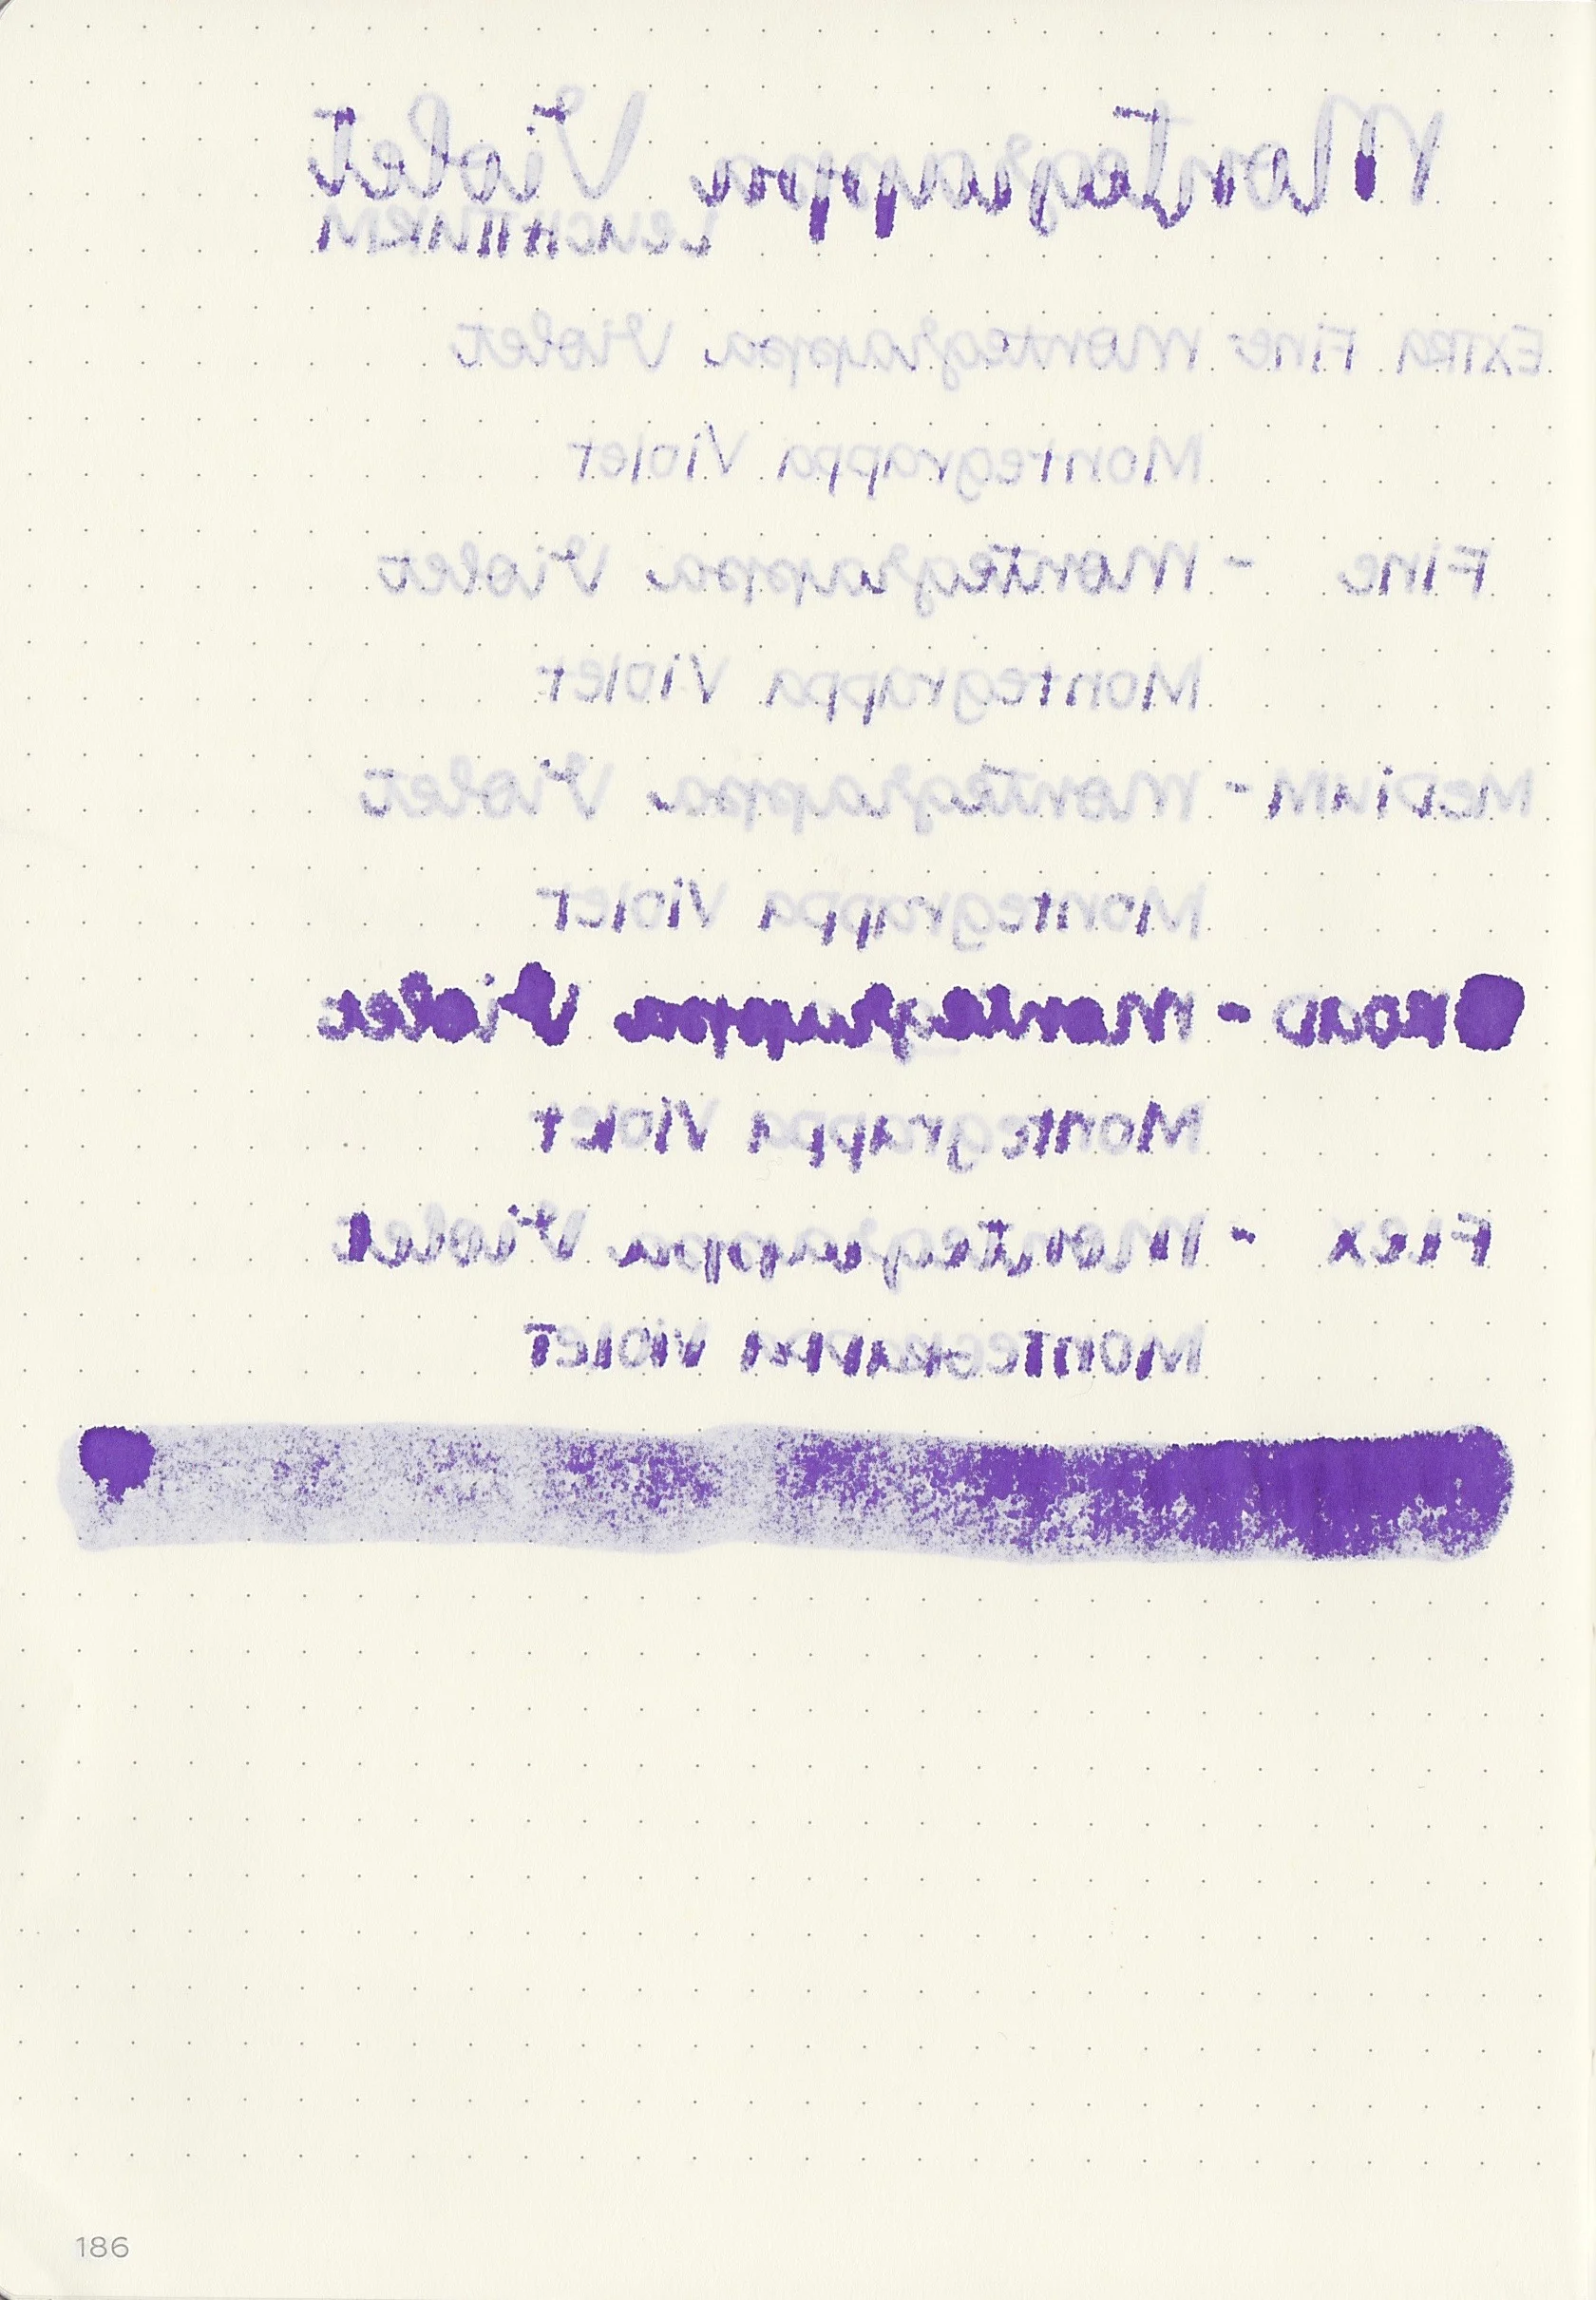 Montegrappa Violet
Leuchtturm
Extra Fine - Montegrappa Violet
Montegrappa Violet
Fine - Montegrappa Violet
Montegrappa Violet
Medium - Montegrappa Violet
Montegrappa Violet
Broad - Montegrappa Violet
Montegrappa Violet
Flex - Montegrappa Violet
Montegrappa Violet
186